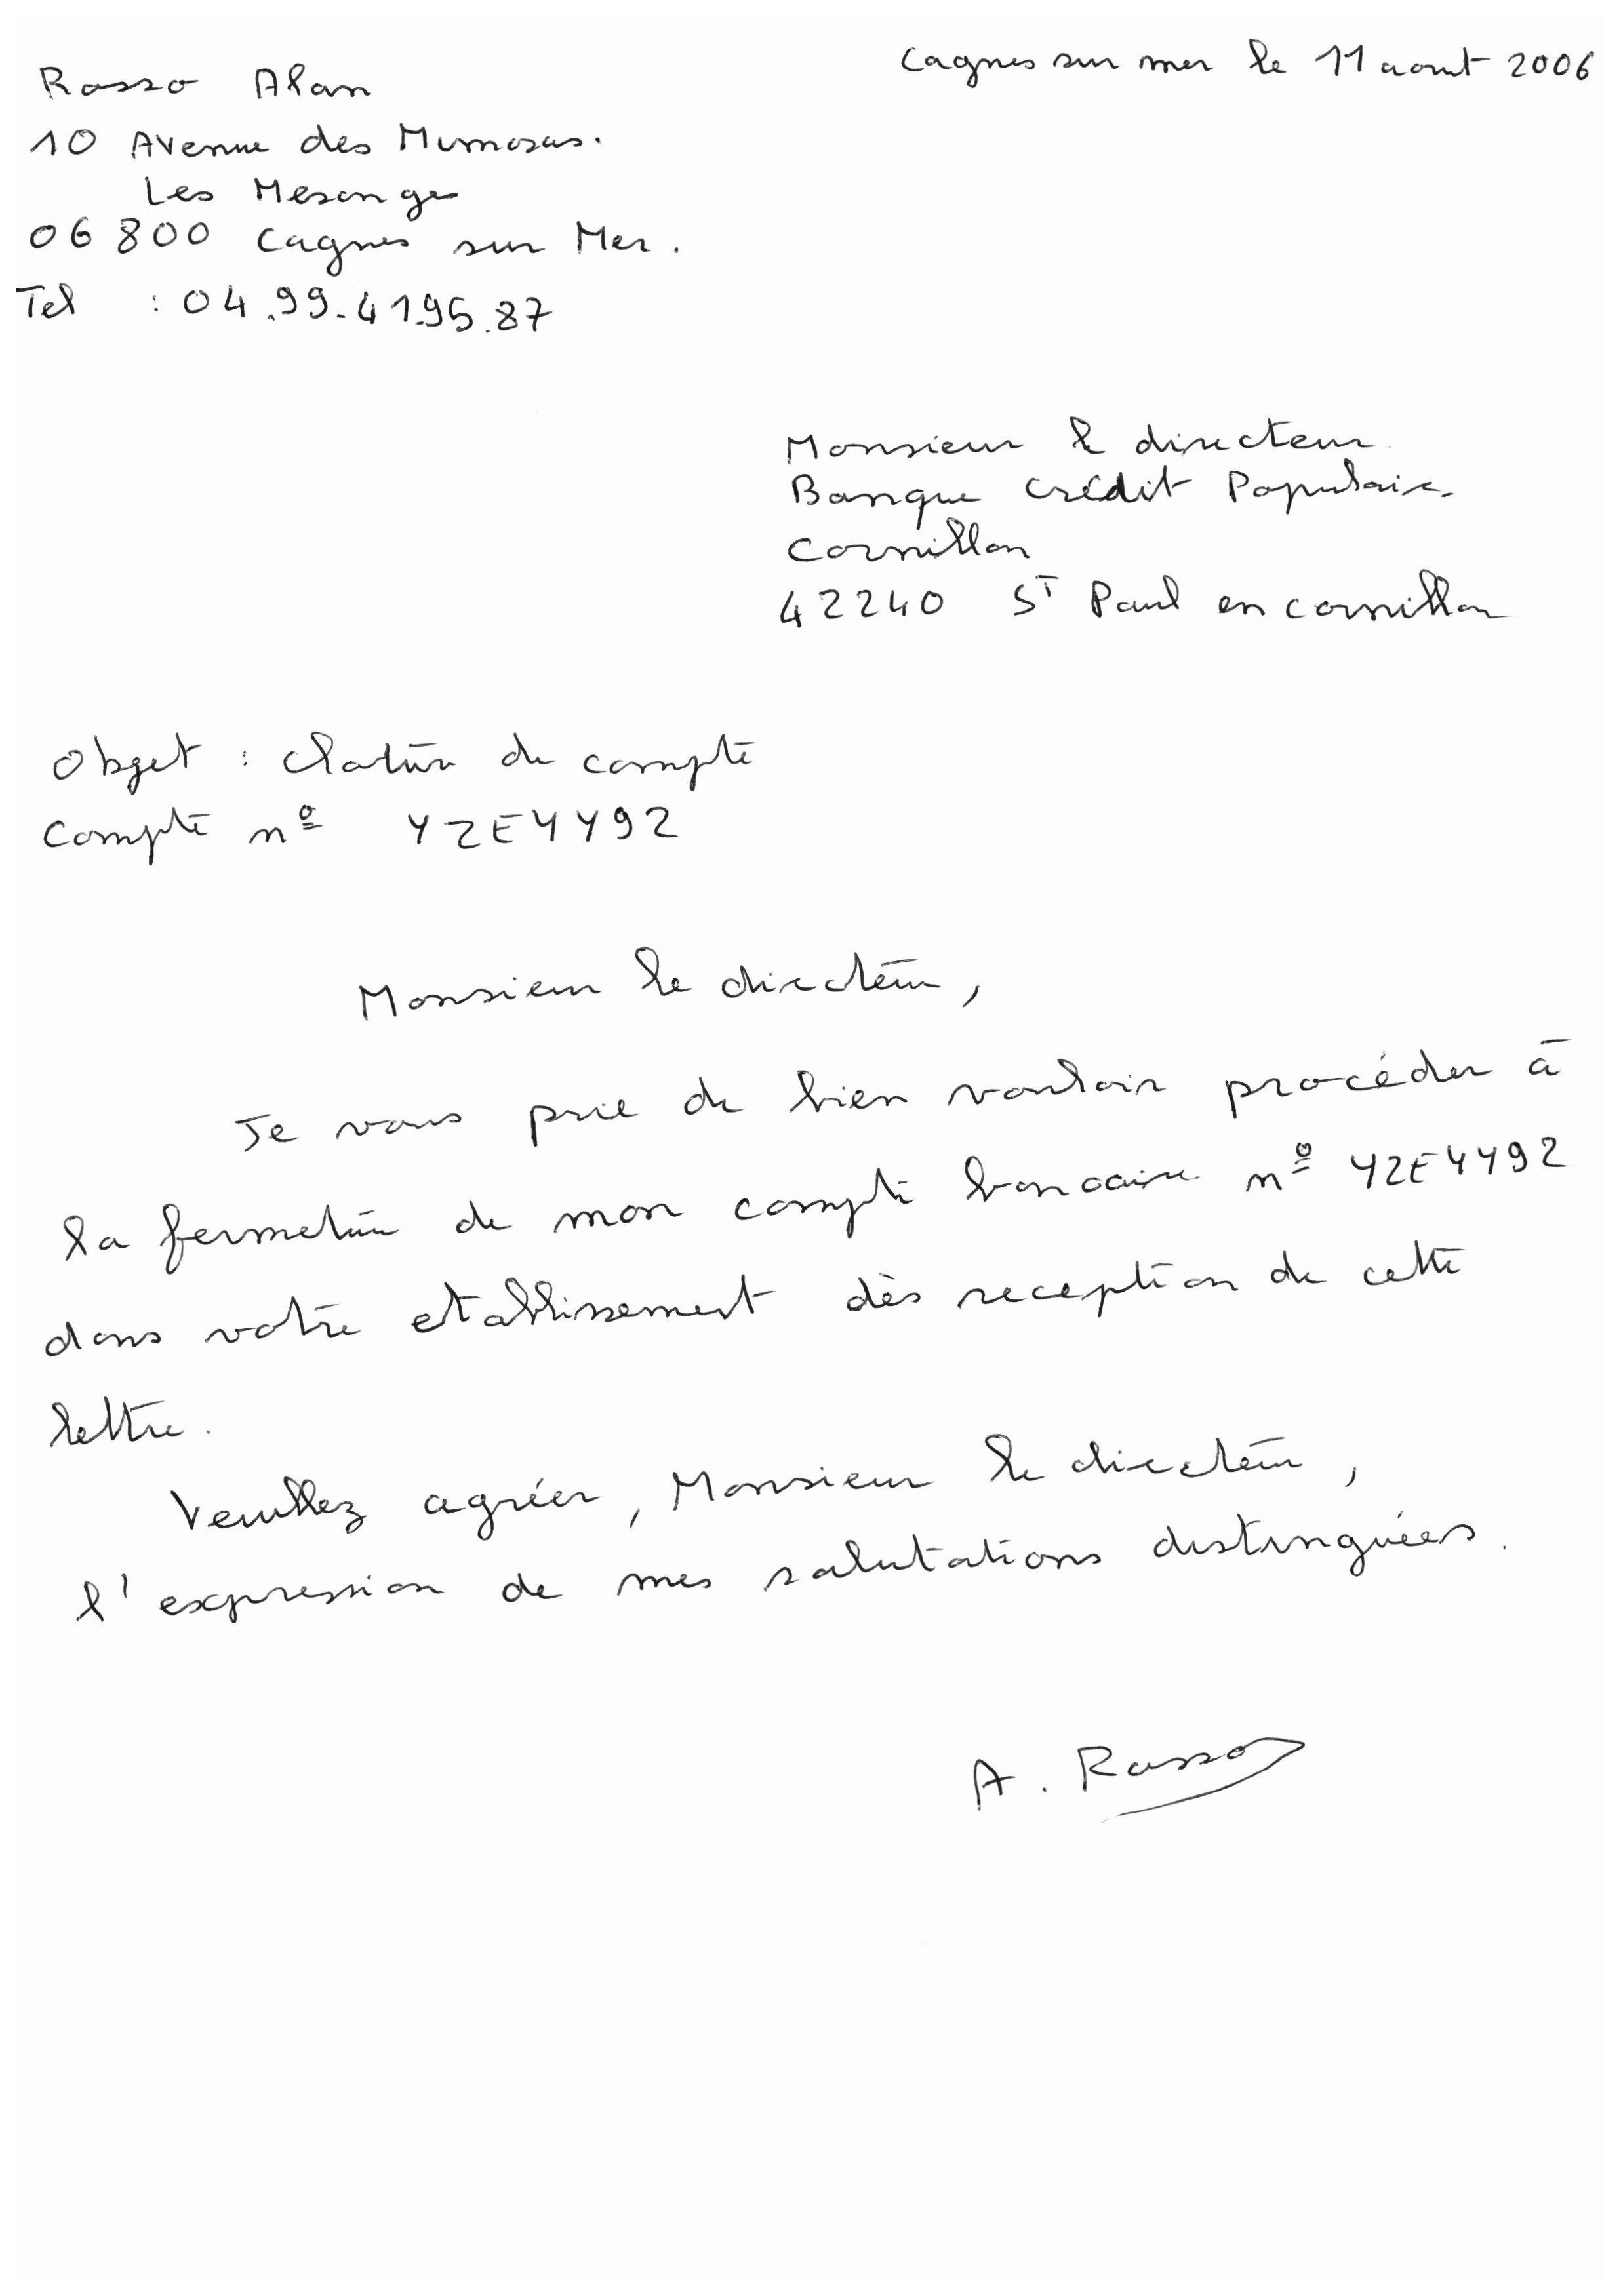 Cagnes sur mer le 11 aout 2006
Rosso Alan
10 Avenue des Mimosas.
Les Mesange
06 800 Cagnes sur Mer.
Tel : 04.99.41.95.87
Monsieur le directeur
Banque Crédit Populaire
Cornillon
42240 ST Paul en cornillon
Objet : Cloture de compte
Compte nº YZE4492
Monsieur le directeur,
Je vous prie de bien vouloir procéder à
la fermeture de mon compte bancaire nº YZE4492
dans votre etablissement dès reception de cette
lettre.
Veuillez agréer, Monsieur le directeur,
l'expression de mes salutations distinguées.
A. Rosso